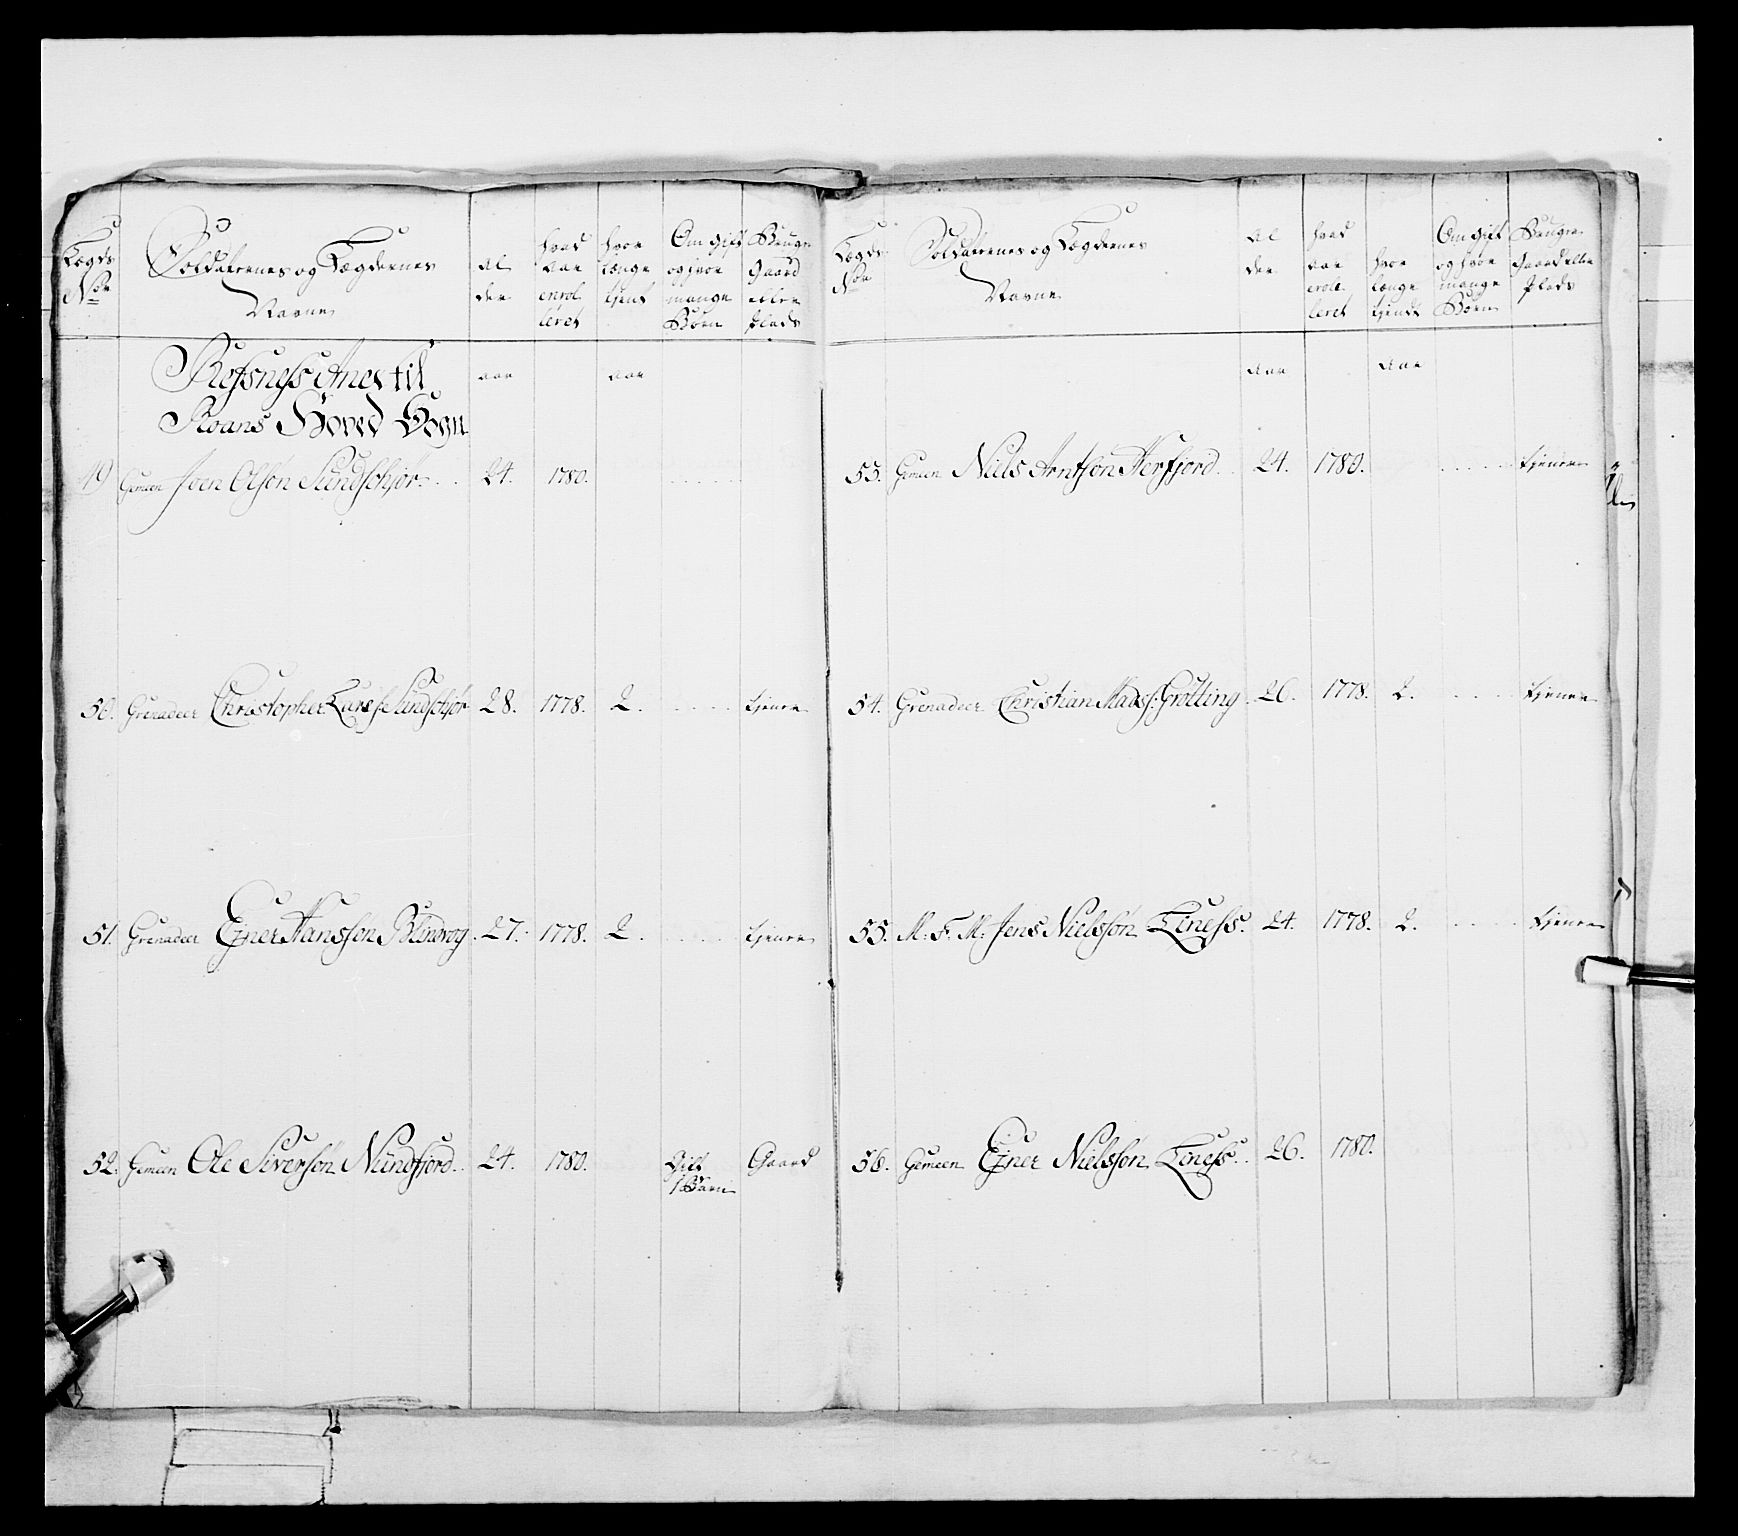 Lægds No
Soldaternes og Lægdernes Navne
Al der
hvad Aar enrol leret
hvor længe tjent
Om gift og hvor mange Børn
Bruger Gaard eller Plads
Refsness Anex til
Roans Hoved Sogn
aar aar
49 Gemeen Iver Olsøn Sundschjør 24. 1780.
50. Grenadeer Christopher Larss: Sundschjør 28. 1778. 2. tjener
51. Grenadeer Ejner Hanssøn 27. 1778. 2. tjener
52. Gemeen Ole Siversøn 24. 1780. Gift 1 Barn Gaard
Lægds No
Soldaternes og Lægdernes Navne
Al der
hvad Aar leret
hvor længe tjendt
Om gift og hvor mange Børn
Bruger Gaard eller Plads
aar aar
53. Gemeen Niels Arntsøn Herfjord 24. 1780. tjener
54. Grenadeer Christian Madss: Grøtting 26. 1778. 2. tjener
55. M. F. M. Jens Nielssøn Liness. 24. 1778. 2. tjener
56. Gemeen Ejner Nielssøn Liness. 26. 1780.